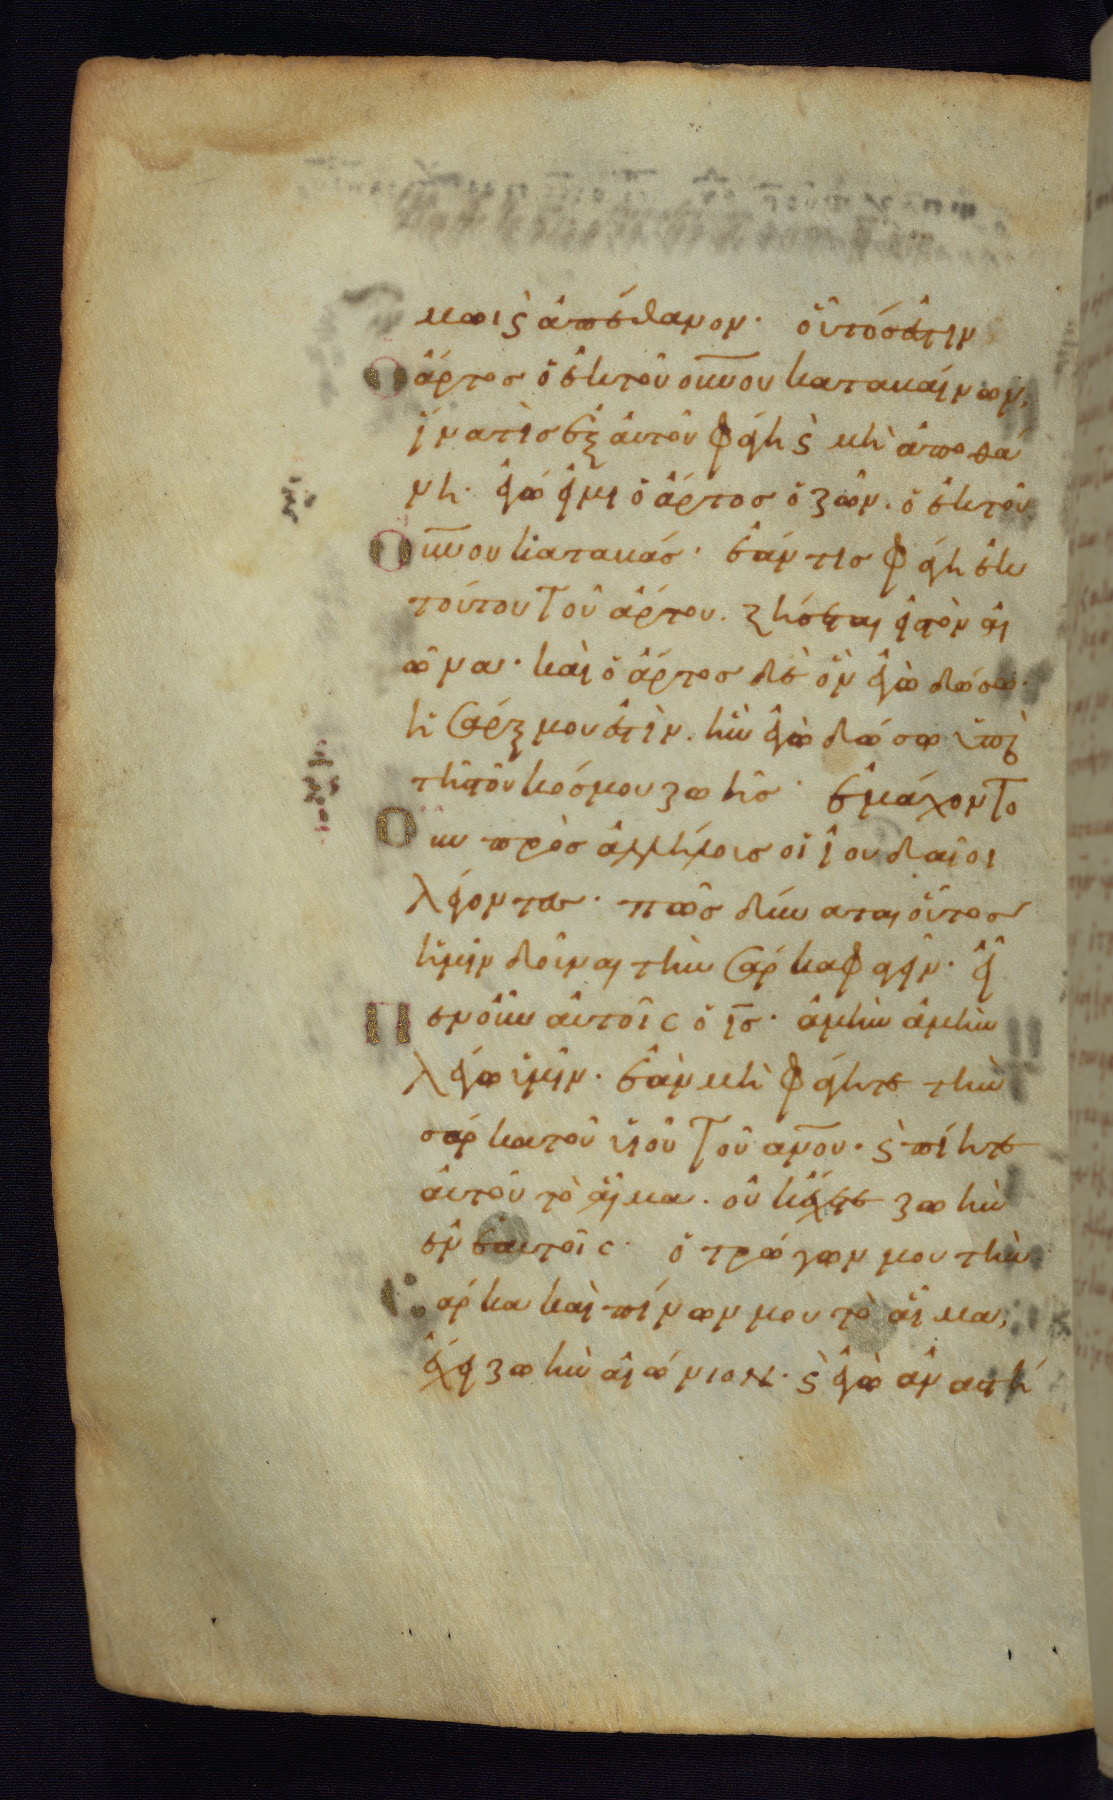 μωσ ϛ ἀπέθανον· οὗτόσἐστιν
ὁ ἄρτοσ ὁ ἐκτοῦ οὐνου καταβαίνων,
ἵνατὶσ ἐξ ἀυτοῦ φάγη ϛ μὴ ἀποθά
νη· ἐγώ ἐιμι ὁ ἄρτοσ ὁ ζῶν. ὁ ἐκτοῦ
οὐνου καταβάσ· ἐάν τισ φάγη ἐκ
τούτου τοῦ ἄρτου. ζήσεται ἐιστὸν αἰ
ῶνα· καὶ ὁ ἄρτοσ δὲ ὃν ἐγὼ δώσω·
ἡ σάρξ μου ἐστὶν. ἣν ἐγὼ δώσω ὑπὲρ
τῆστοῦ κόσμου ζωῆσ· ἐμάχοντο
οὖν πρὸσ ἀλλήλουσ οἱ ἰουδαῖοι
λέγοντεσ· πῶσ δύναται οὗτοσ
ἡμῖν δοῦναι τὴν σάρκα φαγεῖν· εἶ
πενοὖν ἀυτοῖς ὁ ισ· ἀμὴν ἀμὴν
λέγω ὑμῖν· ἐὰν μὴ φάγητε τὴν
σάρκα τοῦ υἱοῦ τοῦ ανου· ϛ πίητε
ἀυτοῦ τὸ αἷμα. οὐκἔχετε ζωὴν
ἐν ἑαυτοῖς· ὁ τρώγων μου τὴν
σάρκα καὶ πίνων μου τὸ αἷμα,
ἔχει ζωὴν αἰώνιον· ϛ ἐγὼ ἀναστή